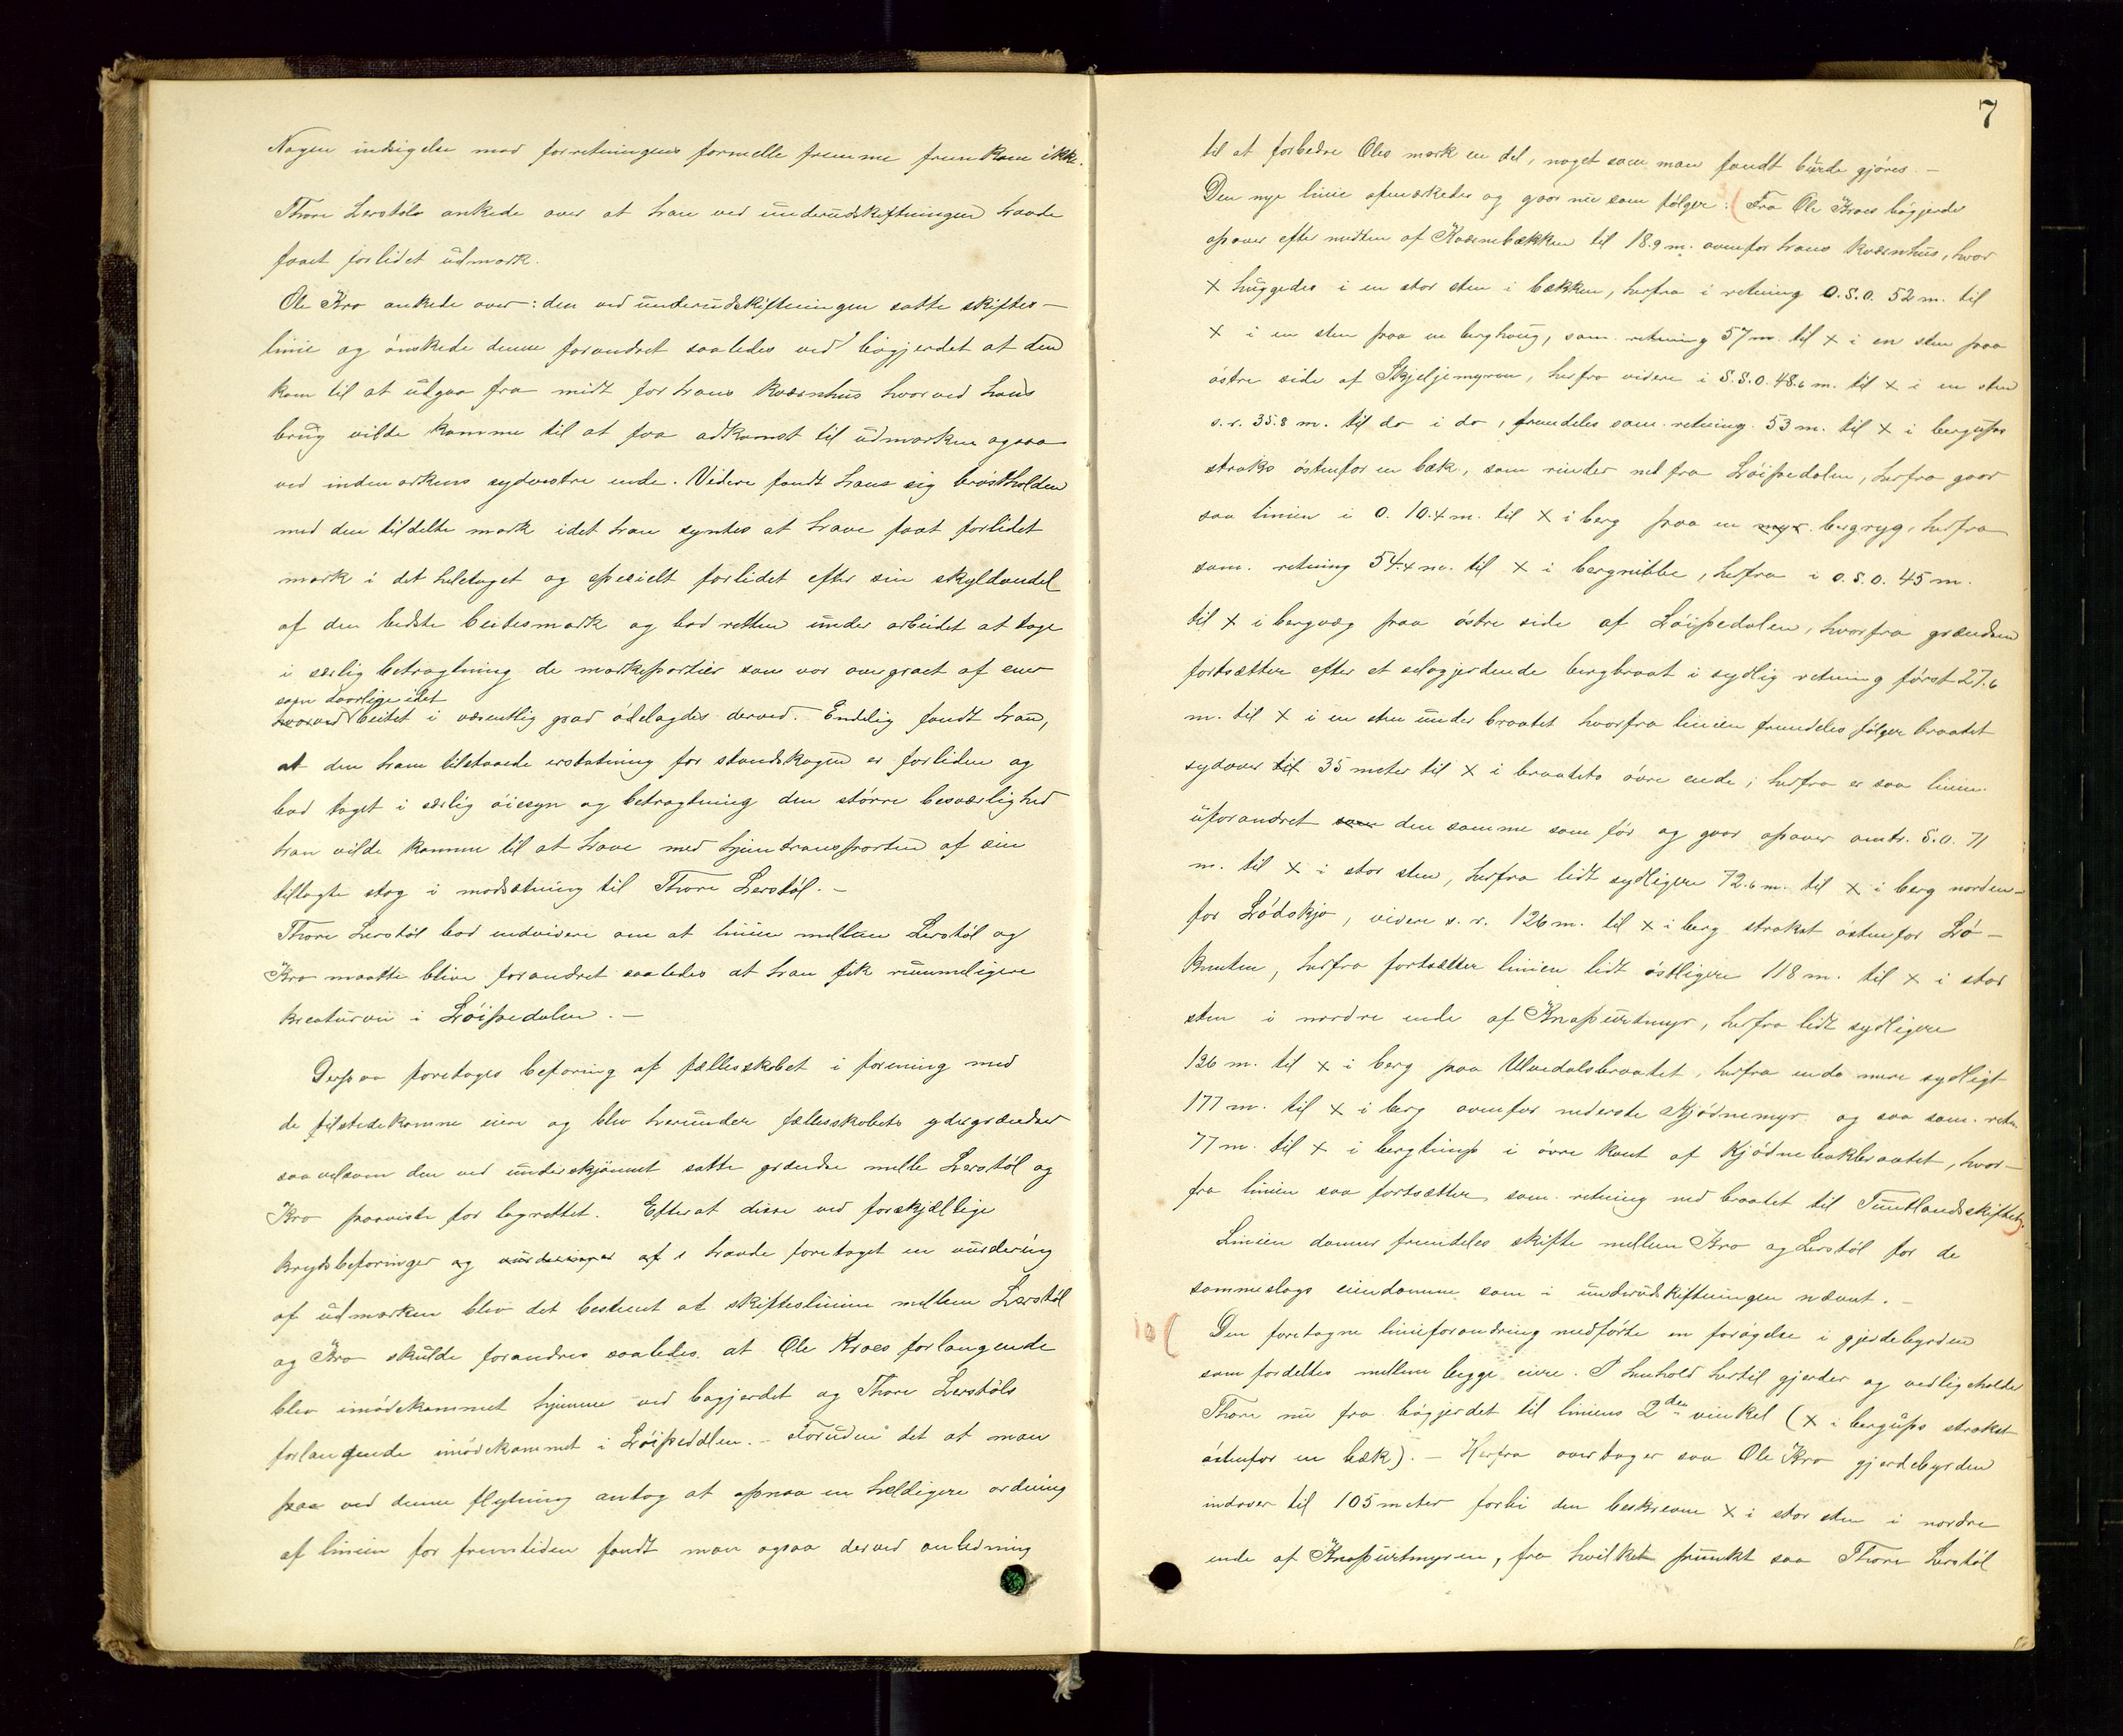 Nogen indsigelse mod forretningens formelle fremme fremkom ikke.
Thore Lerstøls ankede over at han ved underudskiftningen havde
faaet forlidet udmark.
Ole Kro ankede over: den ved underudskiftningen satte skiftes-
linie og ønskede denne forandret saaledes ved bøgjerdet at den
kom til at udgaa fra midt for hans kværnhus hvorved hans
brug vilde komme til at faa adkomst til udmarken ogsaa
ved indmarkens sydvestre ende. Videre fandt hans sig brøstholden
med den tildelte mark idet han syntes at have faat forlidet
mark i det heletaget og specielt forlidet efter sin skyldandel
af den bedste beitesmark og bad retten under arbeidet at tage
i særlig betragtning de markepartier som var overgroet af ener
som daarlige idet
hvorved beitet i væsentlig grad ødelagdes derved. Endelig fandt han,
at den ham tilstaaede erstatning for standskogen er forliden og
bad taget i særlig øiesyn og betragtning den større besværlighed
han vilde komme til at have med hjemtransporten af sin
tillagte skog i modsætning til Thore Lerstøl. -
Thore Lerstøl bad endvidere om at linien mellem Lerstøl og
Kro maatte blive forandret saaledes at han fik rummeligere
kreaturvei i Løipedalen. -
Derpaa foretoges befaring af fællesskabet i forening med
de tilstedekomne eiere og blev herunder fællesskabets ydergrændser
saavelsom den ved underskjønnet satte grændse melle Lerstøl og
Kro paaviste for lagrettet. Efterat disse ved forskjællige
krydsbefaringer og vurderinger af s havde foretaget en vurdering
af udmarken blev det bestemt at skifteslinien mellem Lerstøl
og Kro skulde forandres saaledes at Ole Kroes forlangende
blev imødekommet hjemme ved bøgjerdet og Thore Lerstøls
forlangende imødekommet i Løipedalen. - Foruden det at man
paa ved denne flytning antog at opnaa en heldigere ordning
af linien for fremtiden fandt man ogsaa derved anledning
7
til at forbedre Oles mark en del, noget som man fandt burde gjøres. -
Den nye linie afmærkedes og gaar nu som følger: ( Fra Ole Kroes bøgjerde
opover efter midten af Kværnebækken til 18.9 m. ovenfor hans kværnhus, hvor
x huggedes i en stor sten i bækken, herfra i retning O.S.O. 52 m. til
x i en sten paa en berghaug, sam. retning 57 m. til x i en sten paa
østre side af Skjeljemyren, herfra videre i S.S.O. 48.6 m. til x i en sten
s. r. 35.8 m. til do i do, fremdeles sam. retning 53 m. til x i bergups
straks østenfor en bæk, som rinder ned fra Løipedalen, herfra gaar
saa linien i O. 10.4 m. til x i berg paa en myr bergryg, herfra
sam. retning 54.4 m. til x i bergnibbe, herfra i O.S.O. 45 m.
til x i bergvæg paa østre side af Løipedalen, hvorfra grændsen
fortsætter efter et selvgjerdende bergbraat i sydlig retning først 27.6
m. til x i en sten under braatet hvorfra linien fremdeles følger braatet
sydover til 35 meter til x i braatets øvre ende, herfra er saa linien
uforandret som den samme som før og gaar opover omtr. S.O. 71
m. til x i stor sten, herfra lidt sydligere 72.6 m. til x i berg norden-
for Lødskjo, videre s. r. 126 m. til x i berg strakst østenfor Lø-
knuten, herfra fortsætter linien lidt østligere 118 m. til x i stor
sten i nordre ende af Knapurtmyr, herfra lidt sydligere
126 m. til x i berg paa Ulvedalsbraatet, herfra enda mere sydligt
177 m. til x i berg ovenfor nederste Kjødnemyr og saa sam. retn.
77 m. til x i bergtimp i øvre kant af Kjødnebakbraatet, hvor-
fra linien saa fortsætter sam. retning ned braatet til Tuntlandsskiftet).
Linien danner fremdeles skifte mellem Kro og Lerstøl for de
sammeslags eiendomme som i underudskiftningen nævnt. -
10 ( Den foretagne linieforandring medførte en forøgelse i gjerdebyrden
som fordeltes mellem begge eiere. I henhold hertil gjerder og vedligeholder
Thore nu fra bøgjerdet til liniens 2den vinkel (x i bergups strakst
østenfor en bæk). - Herfra overtager saa Ole Kro gjerdebyrden
indover til 105 meter forbi den beskrevne x i stor sten i nordre
ende af Knapurtmyren, fra hvilket punkt saa Thore Lerstøl